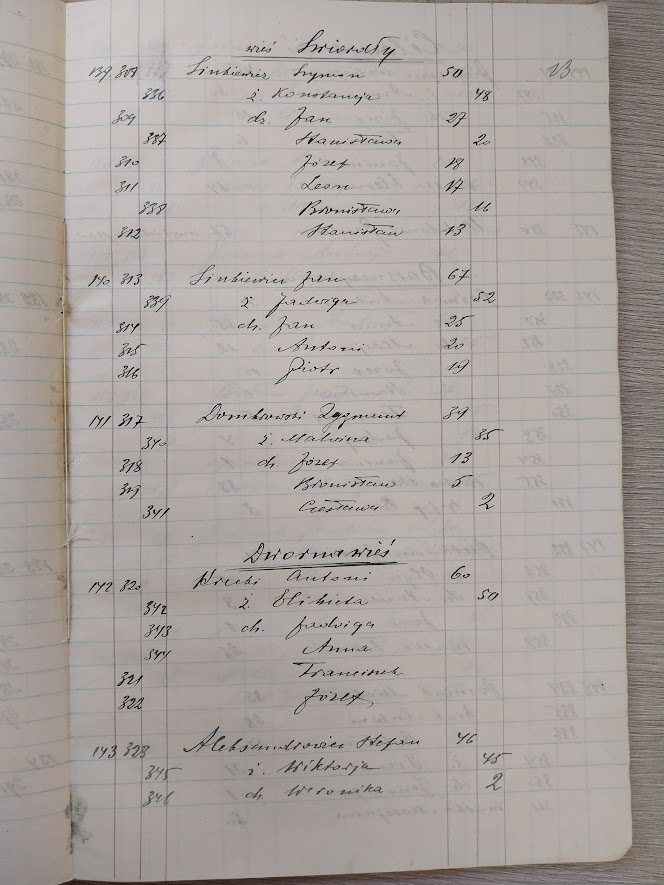 wieś Swiordły
139. 308 Sinkiewicz Szymon 50 23.
336 ż. Konstancja 48
309 dz. Jan 27
337 Stanisława 20
310 Józef 18
311 Leon 17
338 Bronisława 16
312 Stanisław 13
140 313 Sinkiewicz Jan 67
339 ż Jadwiga 52
314 ch. Jan 25
315 Antoni 20
316 Piotr 19
141 317 Dombrowski Zygmunt 39
340 ż. Malwina 35
318 ch. Józef 13
319 Bronisław 5
341 Czesława 2
Dwornawieś
142 320 Antoni 60
342 ż. Elżbieta 50
343 ch. Jadwiga
344 Anna
321 Franciszek
322 Józef
143 323 Aleksandrowicz Stefan 46
345 ż. Wiktorja 45
346 ch. Weronika 2